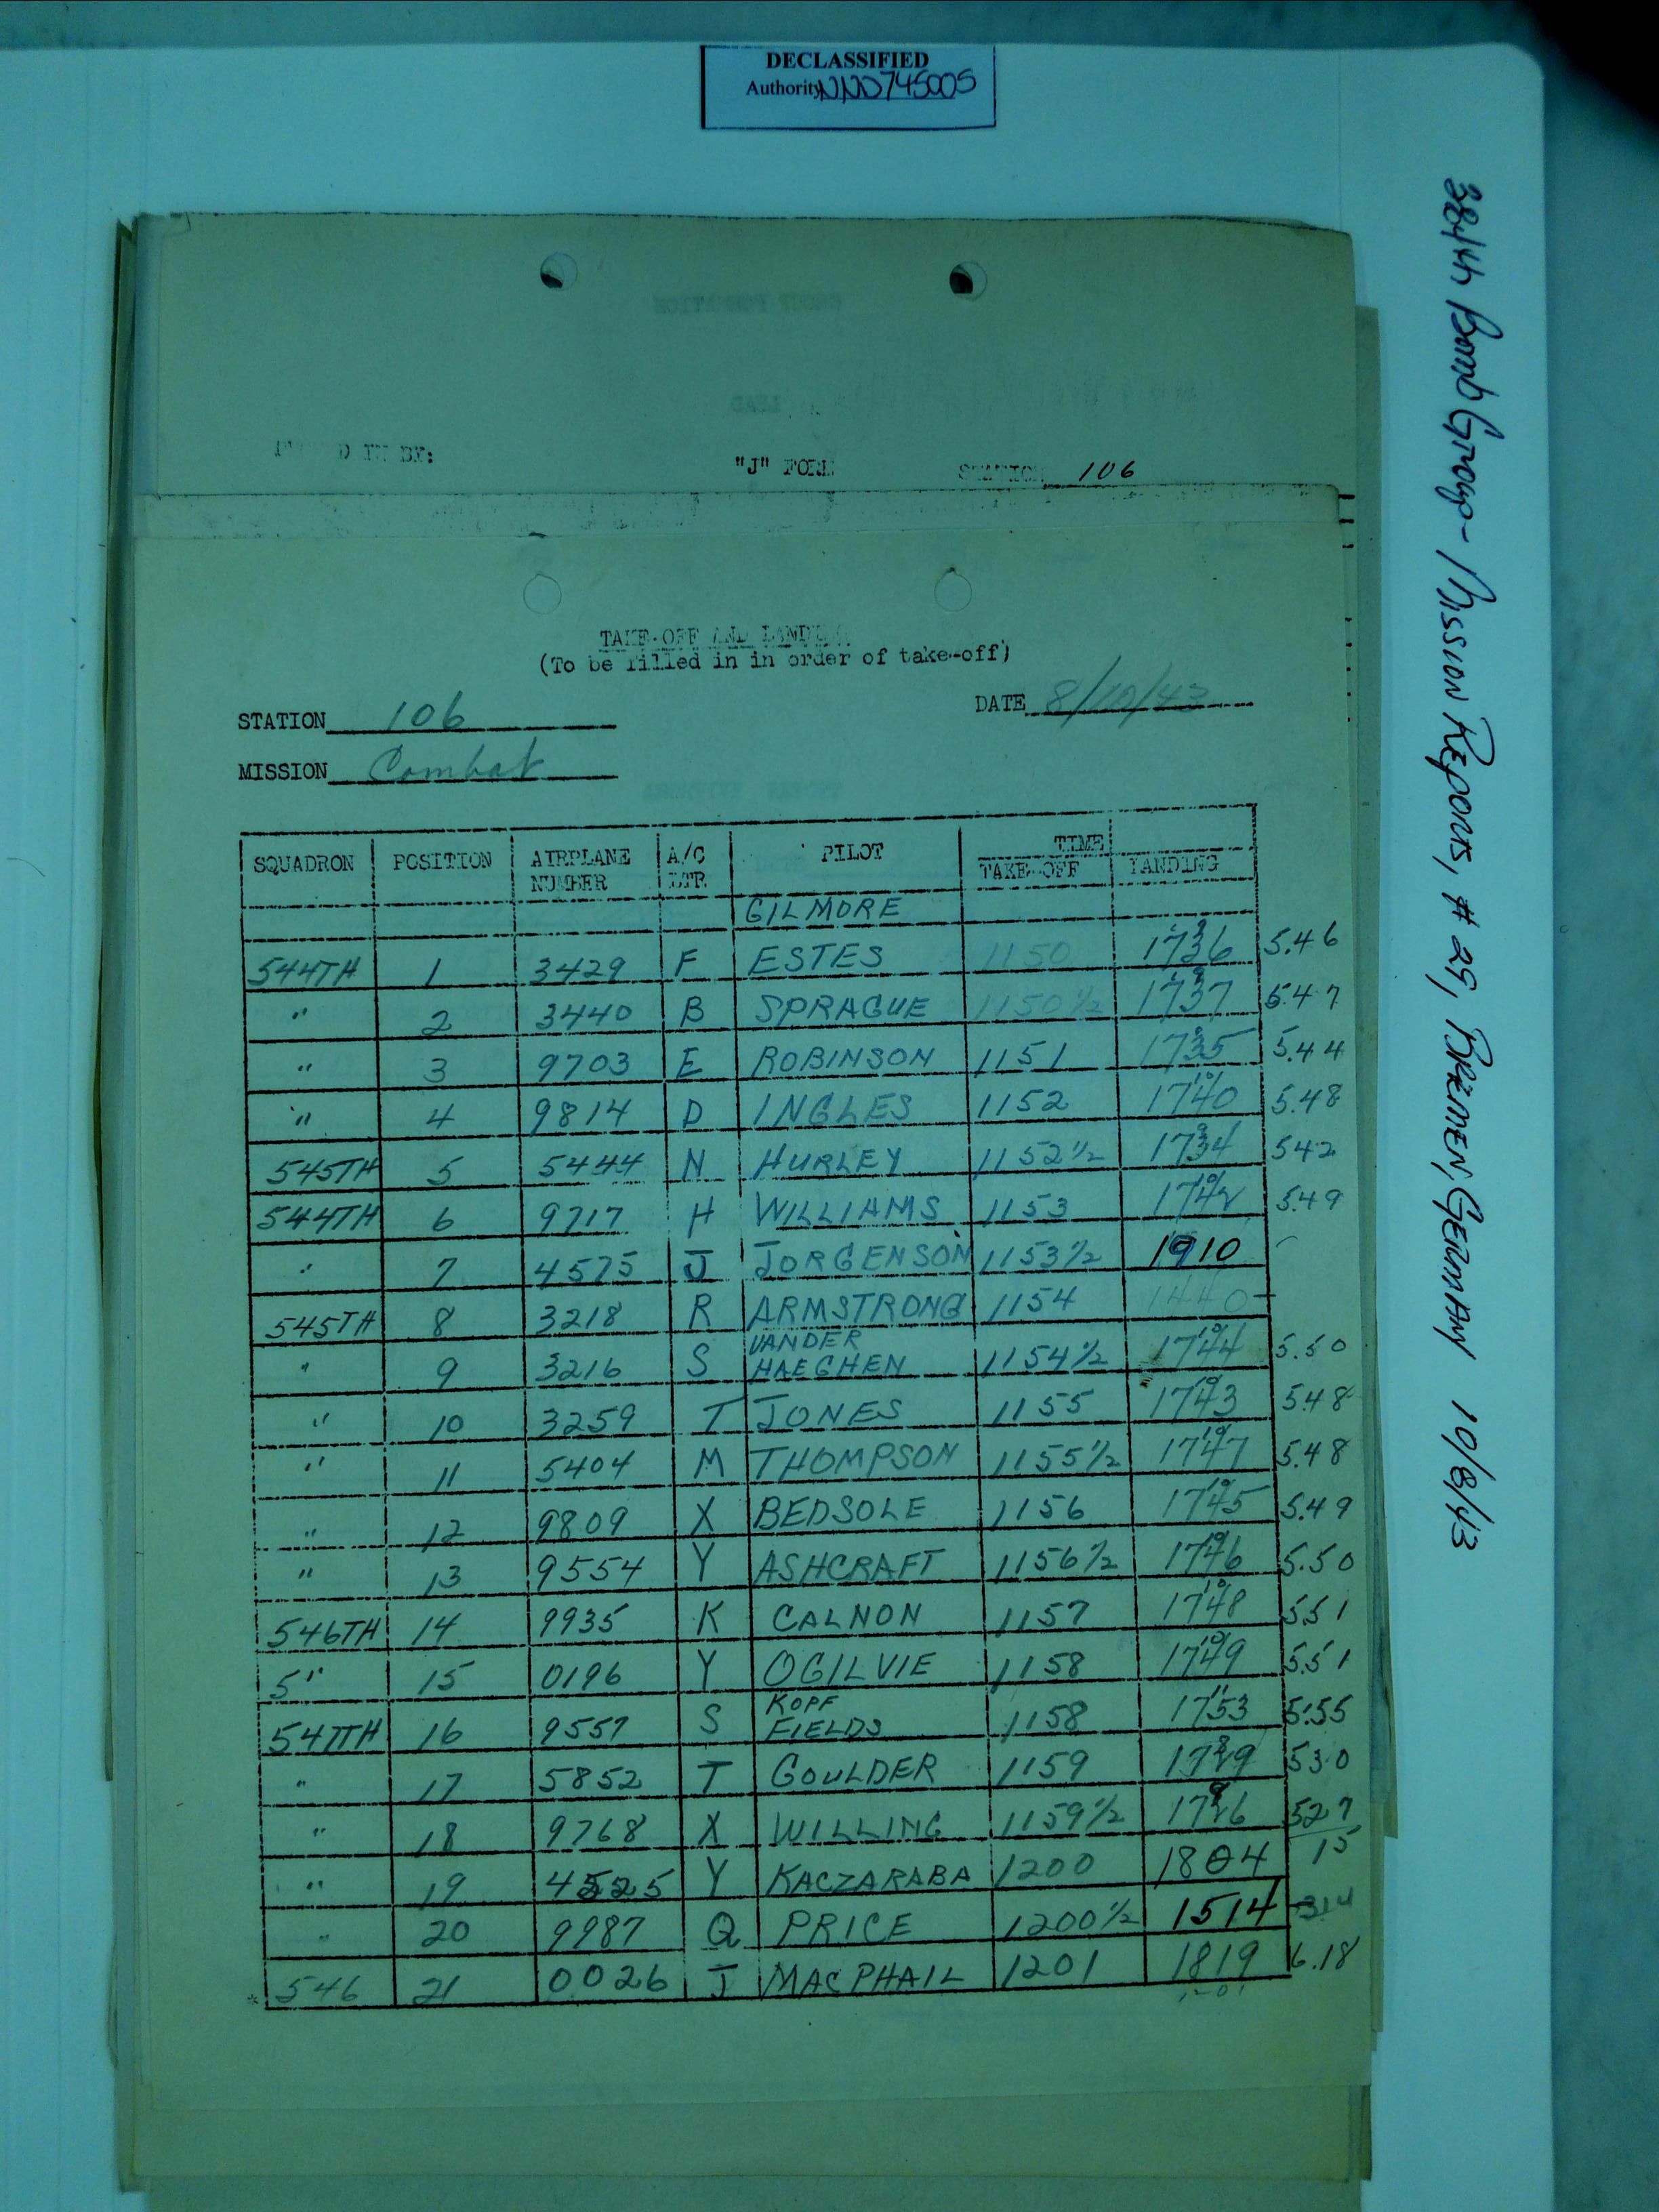 DECLASSIFIED
Authority NND745005
384th Bomb Group - Mission Reports, # 25, Bremen, Germany 10/8/43
D IN BY: "J" FORM STATION 106
TAKE-OFF AND LANDING
(To be filled in in order of take-off)
STATION 106 DATE 8/10/43
MISSION Combat
SQUADRON POSITION AIRPLANE NUMBER A/C LTR PILOT TIME TAKE-OFF LANDING
GILMORE
544TH 1 3429 F ESTES 1150 1736 5.46
" 2 3440 B SPRAGUE 1150 1/2 1737 5.47
" 3 9703 E ROBINSON 1151 1735 5.44
" 4 9814 D INGLES 1152 1740 5.48
545TH 5 5444 N HURLEY 1152 1/2 1734 542
544TH 6 9717 H WILLIAMS 1153 1742 5.49
" 7 4575 J JORGENSON 1153 1/2 1910
545TH 8 3218 R ARMSTRONG 1154 1440 -
" 9 3216 S VANDER HAEGHEN 1154 1/2 1744 5.50
" 10 3259 T JONES 1155 1743 5.48
" 11 5404 M THOMPSON 1155 1/2 1747 5.48
" 12 9809 X BEDSOLE 1156 1745 5.49
" 13 9554 Y ASHCRAFT 1156 1/2 1746 5.50
546TH 14 9935 K CALNON 1157 1748 5.51
5" 15 0196 Y OGILVIE 1158 1749 5.51
547TH 16 9557 S KOPF FIELDS 1158 1753 5.55
" 17 5852 T GOULDER 1159 1729 530
" 18 9768 X WILLING 1159 1/2 1726 527
" 19 4525 Y KACZARABA 1200 1804 15
" 20 9987 Q PRICE 1200 1/2 1514 314
* 546 21 0026 J MACPHAIL 1201 1819 6.18